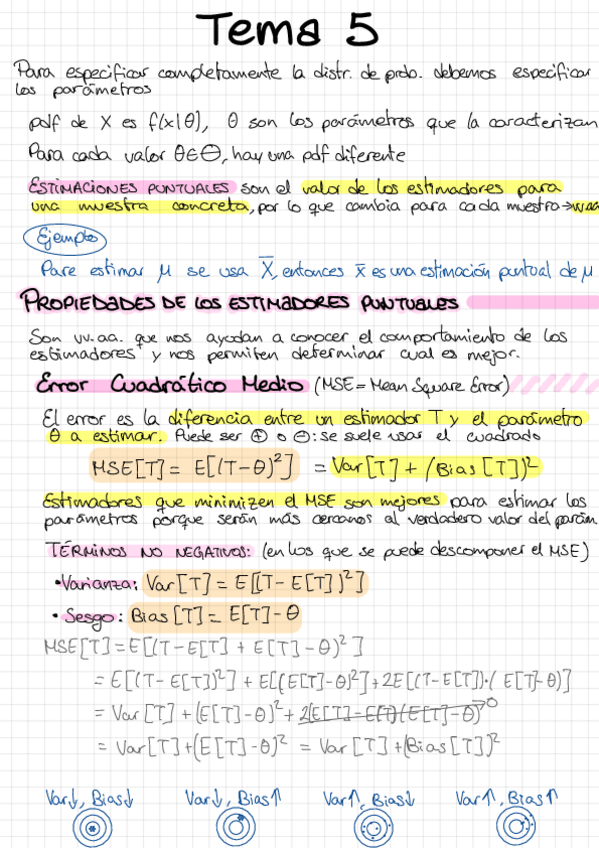 Tema 5
Para especificar completamente la distr. de prob. debemos especificar
los parámetros
pdf de X es f(x|θ), θ son los parámetros que la caracterizan
Para cada valor θ∈Θ, hay una pdf diferente
ESTIMACIONES PUNTUALES son el valor de los estimadores para
una muestra concreta, por lo que cambia para cada muestra→vv.aa
Ejemplo
Para estimar μ se usa X̅, entonces x̅ es una estimación puntual de μ
PROPIEDADES DE LOS ESTIMADORES PUNTUALES
Son vv.aa. que nos ayudan a conocer el comportamiento de los
estimadores y nos permiten determinar cual es mejor.
Error Cuadrático Medio (MSE = Mean Square Error)
El error es la diferencia entre un estimador T y el parámetro
θ a estimar. Puede ser ⊕ o ⊖: se suele usar el cuadrado
MSE[T] = E[(T-θ)²] = Var[T] + (Bias[T])²
Estimadores que minimizen el MSE son mejores para estimar los
parámetros porque serán más cercanos al verdadero valor del parám.
TÉRMINOS NO NEGATIVOS: (en los que se puede descomponer el MSE)
• Varianza: Var[T] = E[(T-E[T])²]
• Sesgo: Bias[T] = E[T]-θ
MSE[T] = E[(T-E[T] + E[T]-θ)²]
= E[(T-E[T])²] + E[(E[T]-θ)²] + 2E[(T-E[T])·(E[T]-θ)]
= Var[T] + (E[T]-θ)² + 2(E[T]-E[T])(E[T]-θ) → 0
= Var[T] + (E[T]-θ)² = Var[T] + (Bias[T])²
Var↓, Bias↓ Var↓, Bias↑ Var↑, Bias↓ Var↑, Bias↑